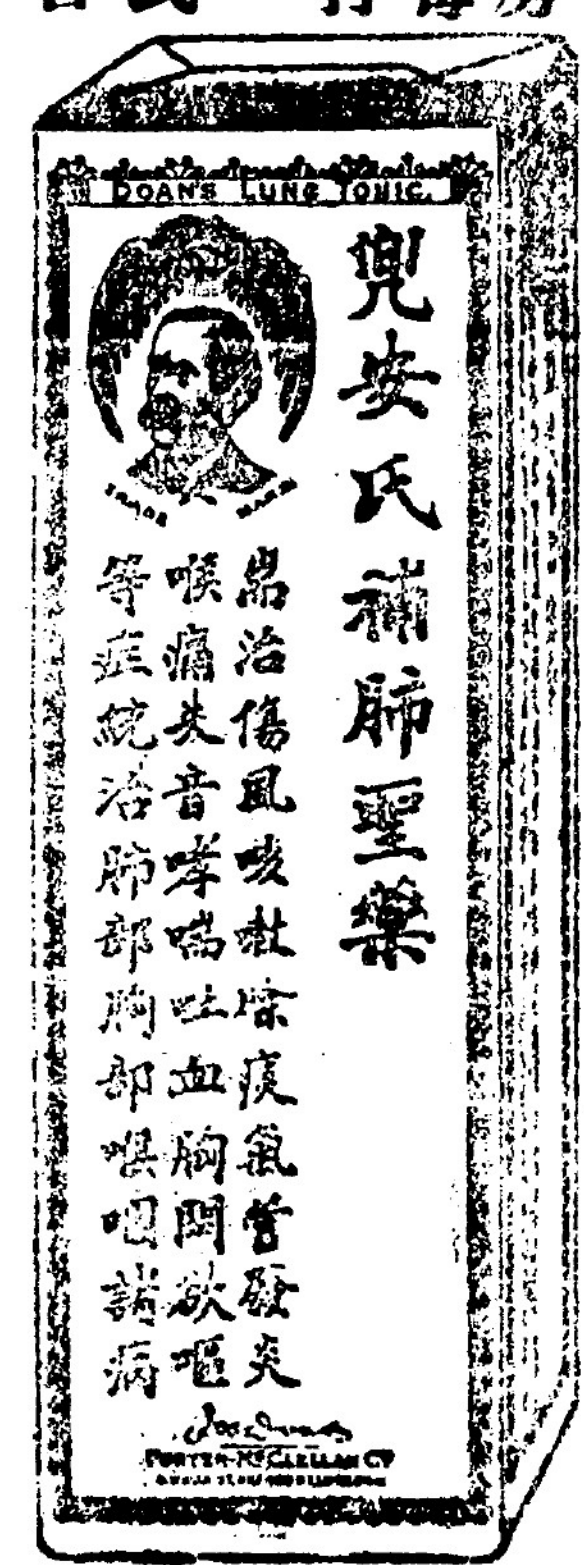 DOAN'S LUNG TONIC.
TRADE MARK
兜安氏補肺聖藥
耑治傷風咳嗽除痰氣管發炎
喉痛失音哮喘吐血胸悶欲嘔
等症統治肺部胸部喉咽諸病
FOSTER-MCCLELLAN CO